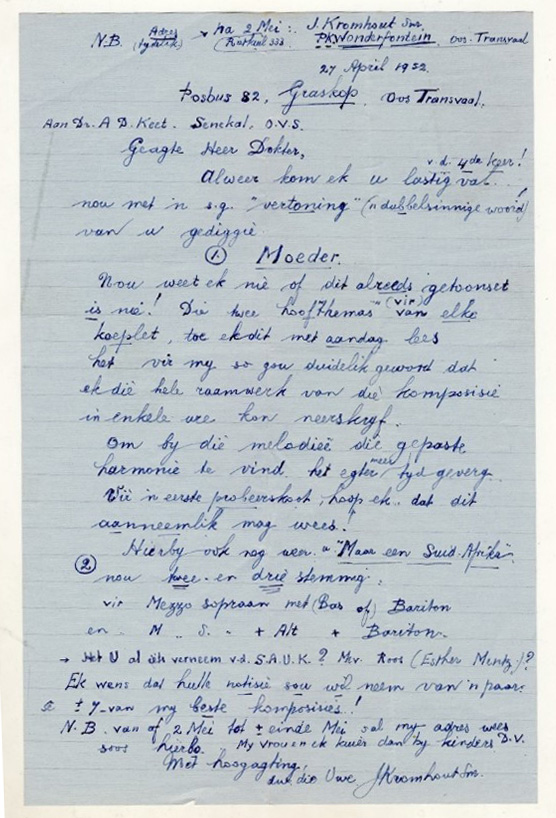 N.B. Adres (tydelik) → na 2 Mei: J. Kromhout Snr.
(Ruskaal 333) P/K Wonderfontein, Oos-Transvaal
27 April 1952.
Posbus 82, Graskop, Oos Transvaal.
Aan Dr. A. D. Keet. Senekal, O.V.S.
Geagte Heer Dokter,
v.d. 4de keer!
Alweer kom ek u lastig vat...
nou met 'n s.g. "vertoning" ('n dubbelsinnige woord)
van u gediggie
① Moeder.
Nou weet ek nie of dit alreeds getoonset
is nie! Die twee hoofthemas (vir) van elke
koeplet, toe ek dit met aandag lees
het vir my so gou duidelik geword dat
ek die hele raamwerk van die komposisie
in enkele ure kon neerskryf.
Om by die melodieë die gepaste
harmonie te vind het egter meer tyd geverg.
Vir 'n eerste probeerskoot, hoop ek dat dit
aanneemlik mag wees!
② Hierby ook nog weer "Maar een Suid-Afrika"
nou twee- en drie stemmig:
vir Mezzo sopraan met (Bas of) Bariton
en M. S. + Alt + Bariton.
→ Het U al iets verneem v.d. S.A.U.K.? Mev. Roos (Esther Mentz)?
Ek wens dat hulle notisie sou wil neem van 'n paar
± 7 van my beste komposisies!
N.B. van af 2 Mei tot ± einde Mei sal my adres wees
soos hierbo. My vrou en ek kuier dan by kinders D.V.
Met hoogagting,
due die Uwe J Kromhout Snr.